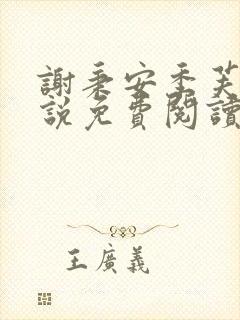 謝秉安季芙
說免費閱讀
王廣義